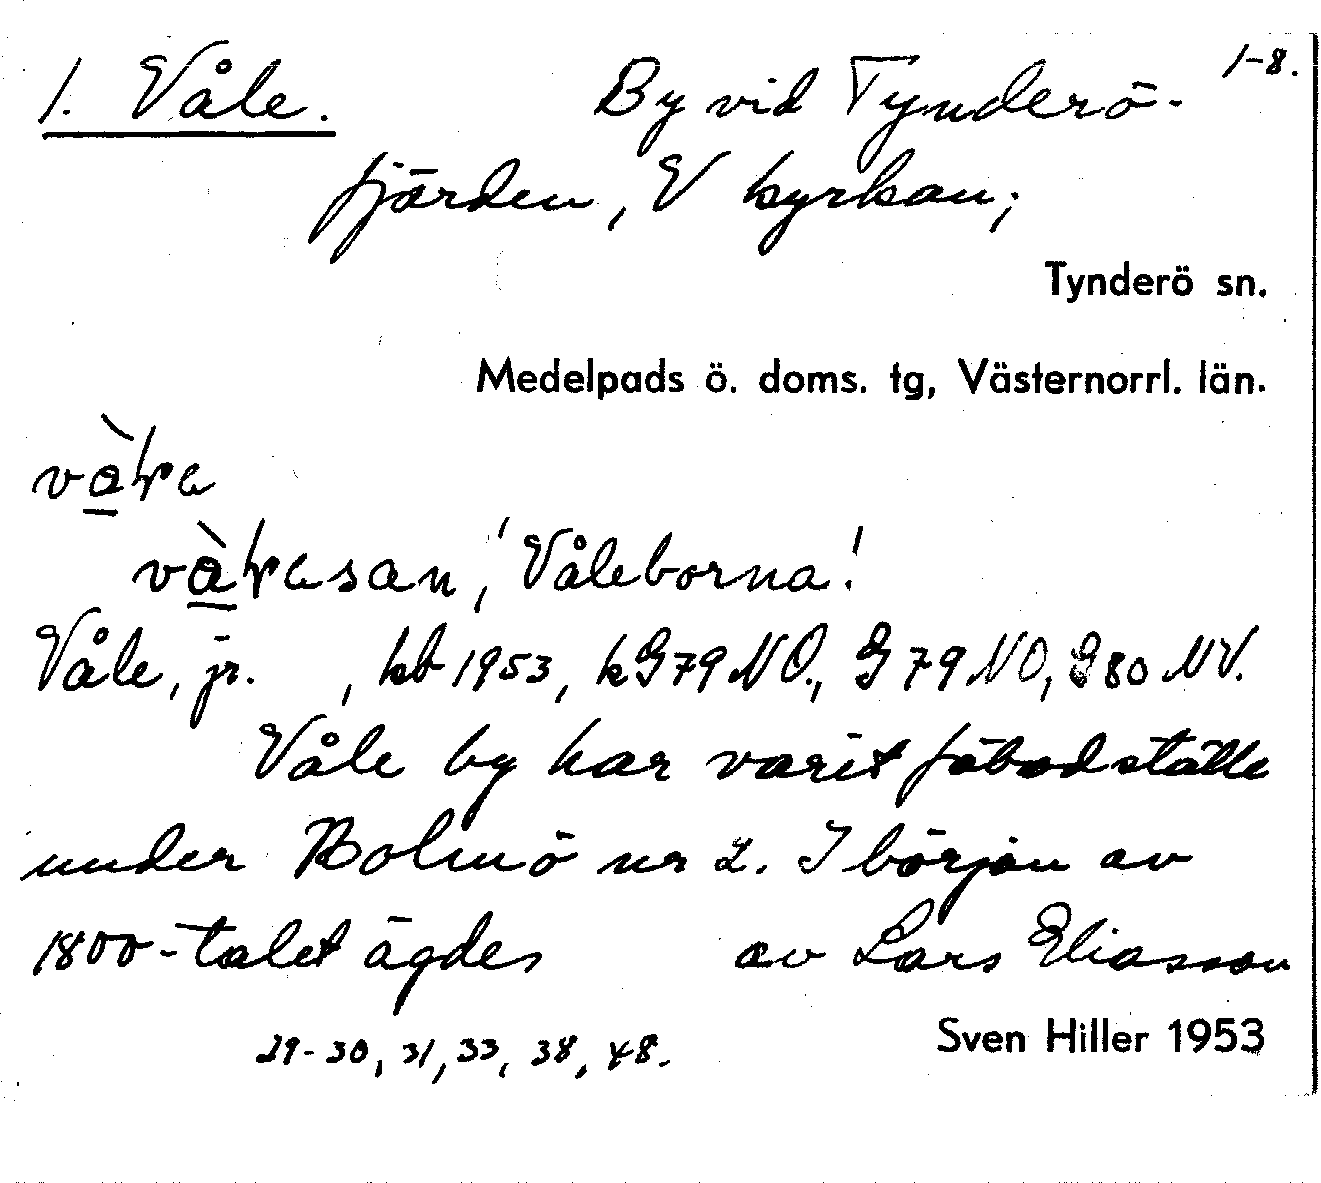 1. Våle. By vid Tynderö- 1-8.
fjärden, V kyrkan;
Tynderö sn.
Medelpads ö. doms. tg, Västernorrl. län.
'Våleborna'.
Våle, jr. , kb 1953, kG79NO., G79NO, G80NV.
Våle by har varit fäbodställe
under Rolmö nr 2. I början av
1800-talet ägdes av Lars Eliasson
29-30, 31, 33, 38, 48.
Sven Hiller 1953